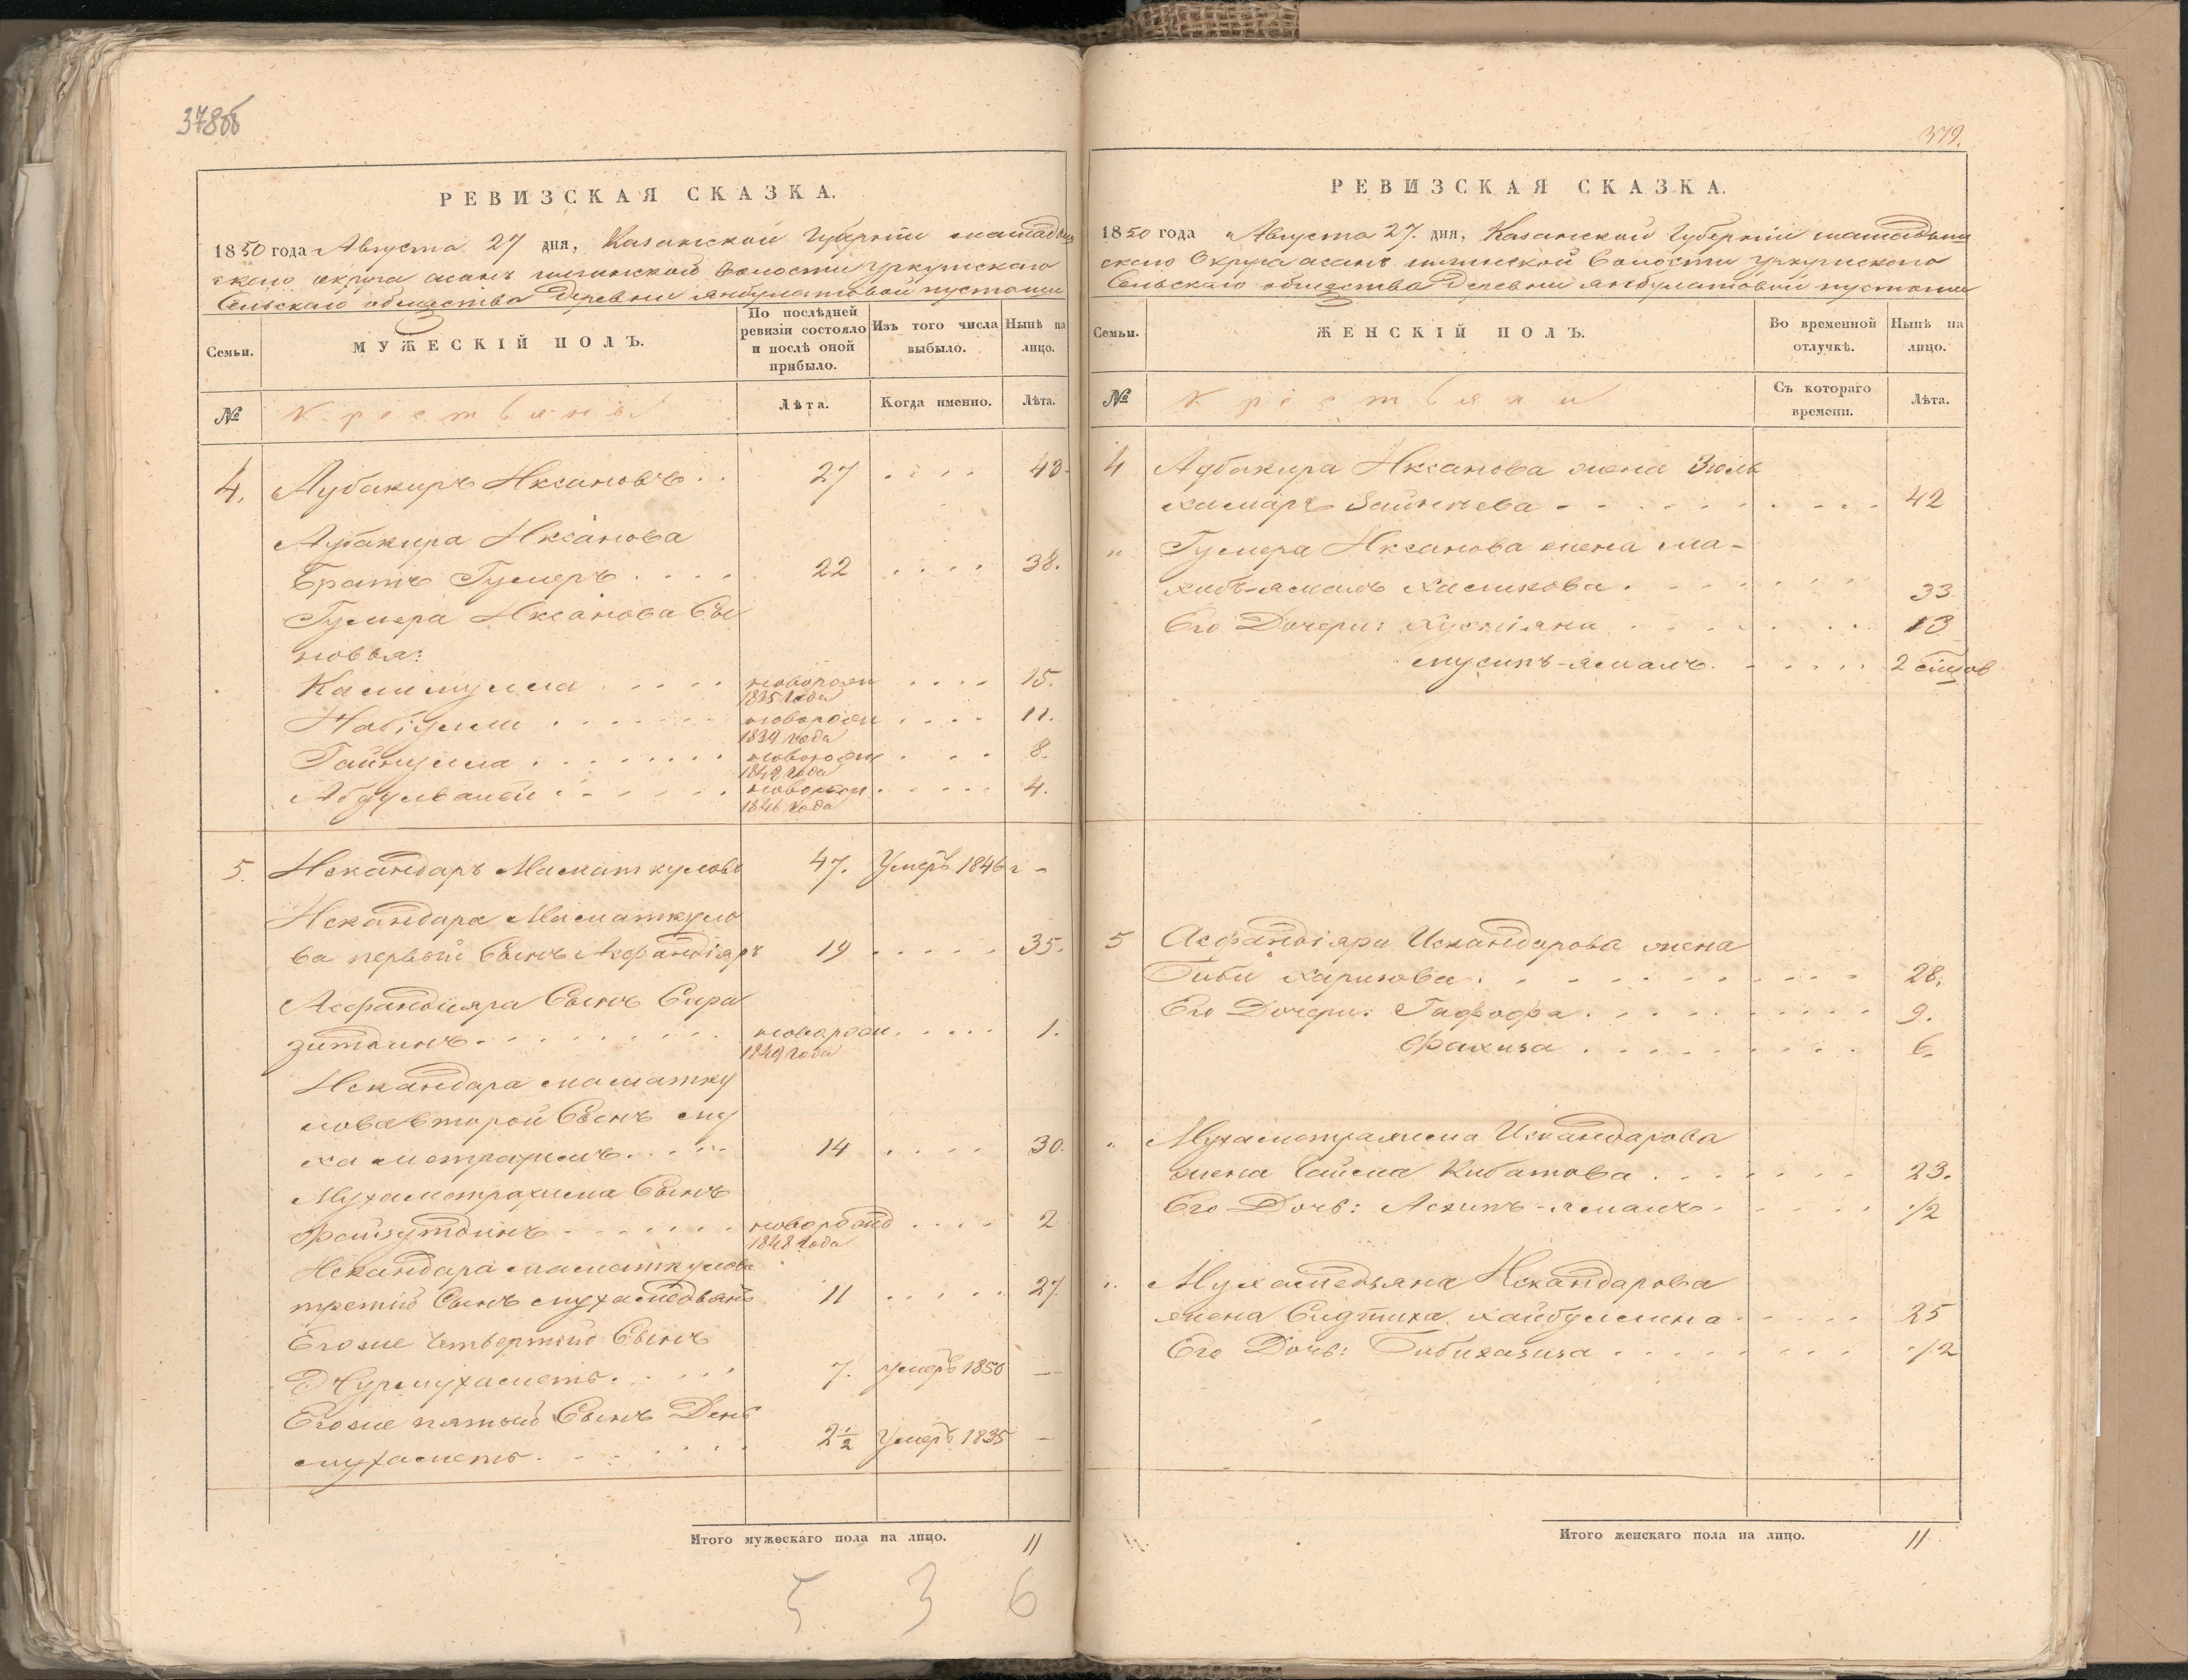 378об
РЕВИЗСКАЯ СКАЗКА.
1850 года Августа 27 дня, Казанской Губерніи мамадыш
скаго округа асанъ волости уркушскаго
Сельскаго общества деревни янбулатовой пустоши
Семьи.
МУЖЕСКІЙ ПОЛЪ.
По послѣдней ревизіи состояло и послѣ оной прибыло.
Изъ того числа выбыло.
Нынѣ на лицо.
№
Крестьяне
Лѣта.
Когда именно.
Лѣта.
4. Аубакиръ Иксановъ . . 27 . . . . 43.
Аубакира Иксанова
братъ Гумеръ . . . . 22 . . . . 38.
Гумера Иксанова Сы
новья:
новорож . . . . 15.
1835 года
Набіулла . . . . новорож . . . . 11.
1839 года
Гайнулла . . . . новорож . . . 8.
1842 года
новорож . . . . 4.
1846 года
5. Искандаръ Маматкуловъ 47. Умеръ 1846 г -
Искандара Маматкуло
ва первой Сынъ Асфандіяръ 19 . . . . 35.
Асфандияра Сынъ Сира
зитдинъ . . . . новорож . . . . 1.
1849 года
Искандара маматку
лова второй Сынъ му
хаметрахимъ . . . . 14 . . . . 30.
Мухаметрахима Сынъ
Файзутдинъ . . . . новорожд . . . . 2
1848 года
Искандара маматкулова
третій Сынъ мухамедьянъ 11 . . . . 27.
Егоже четвертый Сынъ
Нурмухаметъ . . . . 7. умеръ 1850 —
Егоже пятый Сынъ Дин
мухаметъ . . . . 2 1/2 Умеръ 1835 —
Итого мужескаго пола на лицо. 11
5 3 6
379.
РЕВИЗСКАЯ СКАЗКА.
1850 года Августа 27. дня, Казанской Губерніи мамадыш
скаго Округа асанъ волости уркушскаго
Сельскаго общества Деревни янбулатовой пустоши
Семьи.
ЖЕНСКІЙ ПОЛЪ.
Во временной отлучкѣ.
Нынѣ на лицо.
№
Крестьяне
Съ котораго времени.
Лѣта.
4 Аубакира Иксанова жена Зюль
хамаръ . . . . 42
" Гумера Иксанова жена ма-
хибъ-ямалъ . . . . 33
Его Дочери: . . . . 13
. . . . 2 мѣсяцов
5 Асфандіяра Искандарова жена
Биби Каримова . . . . 28.
Его Дочери: Гафофа . . . . 9.
Фахиза . . . . 6.
" Мухаметрахима Искандарова
жена . . . . 23.
Его Дочь: . . . . 1/2
" Мухамедьяна Искандарова
жена Сидтика Хайбуллина . . . . 25
Его Дочь: Бибихазиза . . . . 1/2
Итого женскаго пола на лицо. 11